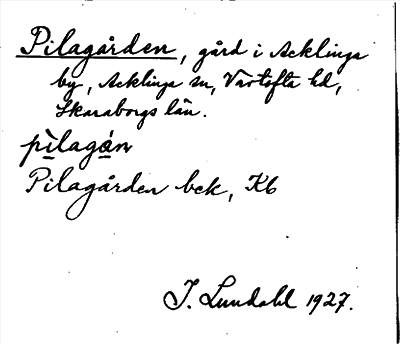 Pilagården, gård i Acklinga
by, Acklinga sn, Vartofta hd,
Skaraborgs län.
pìlagán
Pilagården bek, Kb
I. Lundahl 1927.